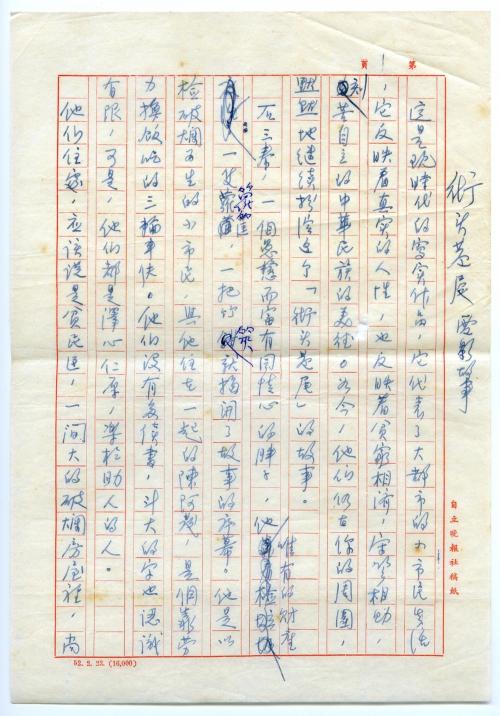 第 1 頁
街头巷尾 電影故事
這是現時代的寫實作品，它代表了大都市的小市民生活
，它反映着真实的人性，也反映着貧窮相濟，守望相助，
刻苦自立的中華民族的美德。如今，他們仍在你的周圍，
默默地继续於演这个「街头巷尾」的故事。
石三泰，一個愚憨而富有同情心的胖子，他唯有的財產
一支籮筐，一把竹筴就揭開了故事的序幕。他是以
检破爛为生的小市民，與他住在一起的陳阿発，是個靠劳
力换飯吃的三輪車伕。他們没有多读書，斗大的字也認識
有限，可是，他們都是澤心仁厚，樂於助人的人。
他們住家，应该说是貧民区，一間大的破爛房屋裡，尚
自立晚報社稿紙
52. 2. 23. (16,000)